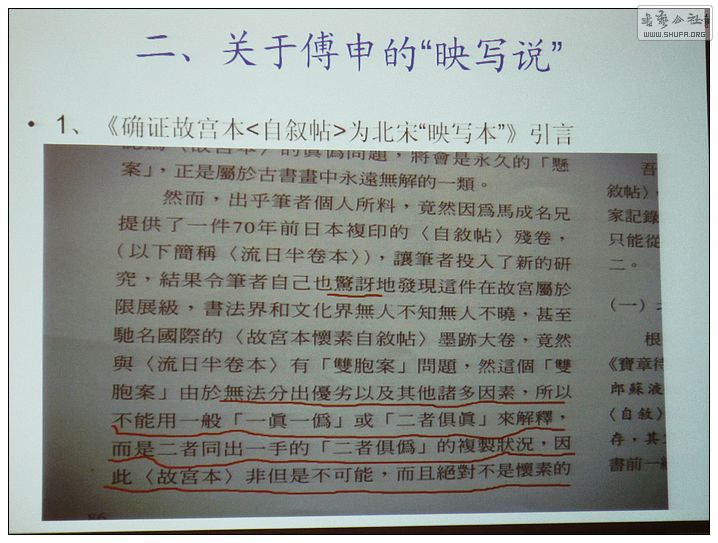 书艺公社
WWW.SHUFA.ORG
二、关于傅申的“映写说”
• 1、《确证故宫本<自叙帖>为北宋“映写本”》引言
的真偽問題，將會是永久的「懸
案」，正是屬於古書畫中永遠無解的一類。
然而，出乎筆者個人所料，竟然因爲馬成名兄
提供了一件70年前日本複印的〈自敘帖〉殘卷，
（以下簡稱〈流日半卷本〉），讓筆者投入了新的研
究，結果令筆者自己也驚訝地發現這件在故宮屬於
限展級，書法界和文化界無人不知無人不曉，甚至
馳名國際的〈故宮本懷素自敘帖〉墨跡大卷，竟然
與〈流日半卷本〉有「雙胞案」問題，然這個「雙
胞案」由於無法分出優劣以及其他諸多因素，所以
不能用一般「一眞一僞」或「二者俱眞」來解釋，
而是二者同出一手的「二者俱僞」的複製狀況，因
此〈故宮本〉非但是不可能，而且絕對不是懷素的
86
吾
敘帖〉
家記錄
只能從
二。
（一）
根
《寶章待
郎蘇液
〈自敘〉
存，其
書前一